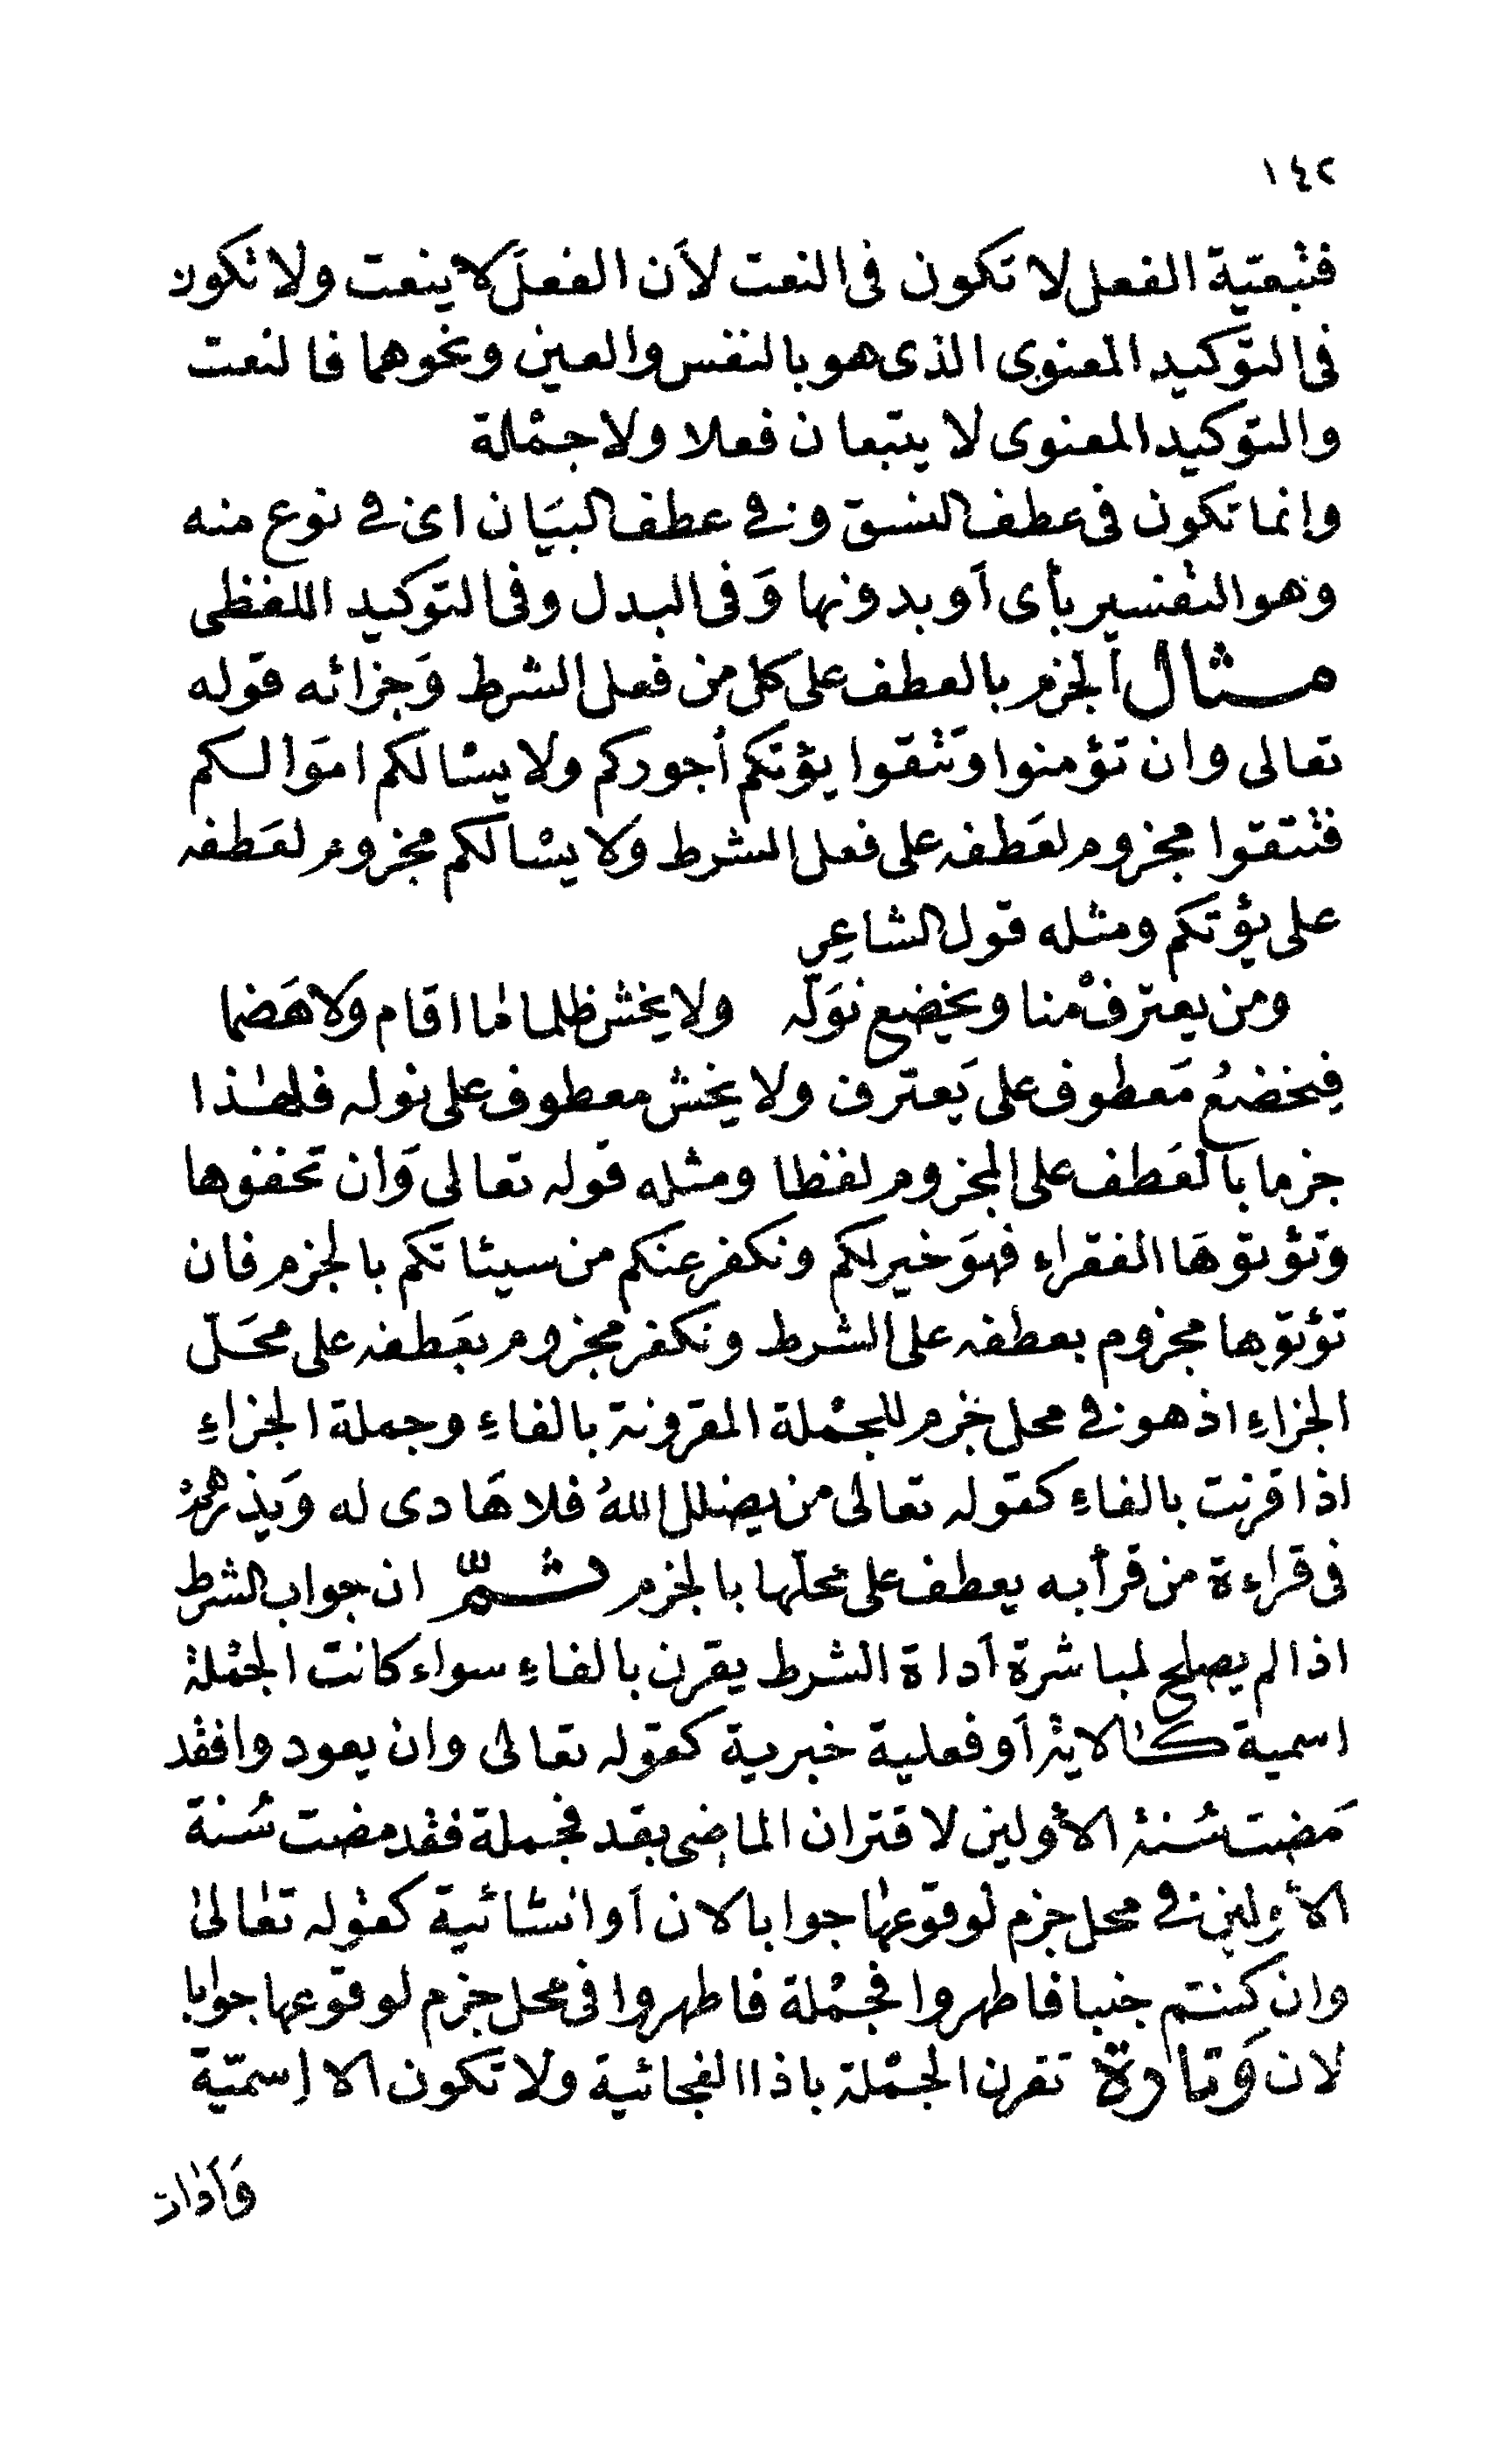 ١٤٢
فتبعيّة الفعل لا تكون فى النعت لأن الفعل لا ينعت ولا تكون
فى التوكيد المعنوى الذى هو بالنفس والعين ونحوهما فالنعت
والتوكيد المعنوى لا يتبعان فعلا ولا جملة
وإنما تكون فى عطف النسق وفى عطف البيان اى فى نوع منه
وهو التفسير بأى أو بدونها وفى البدل وفى التوكيد اللفظى
مثال الجزم بالعطف على كل من فعل الشرط وجزائه قوله
تعالى وان تؤمنوا وتتقوا يؤتكم أجوركم ولا يسألكم اموالكم
فتتقوا مجزوم لعطفه على فعل الشرط ولا يسألكم مجزوم لعطفه
على يؤتكم ومثله قول الشاعر
ومن يعترف منا ويخضع نوله ولا يخش ظلما ما اقام ولا هضما
فيخضع معطوف على يعترف ولا يخش معطوف على نوله فلهذا
جزما بالعطف على المجزوم لفظا ومثله قوله تعالى وان تخفوها
وتؤتوها الفقراء فهو خير لكم ونكفر عنكم من سيئاتكم بالجزم فان
تؤتوها مجزوم بعطفه على الشرط ونكفر مجزوم بعطفه على محلّ
الجزاءِ اذ هو فى محل جزم للجملة المقرونة بالفاءِ وجملة الجزاءِ
اذا قرنت بالفاءِ كقوله تعالى من يضلل اللهُ فلا هادى له ويذرهم
فى قراءة من قرأ به يعطف على محلّها بالجزم ثمّ ان جواب الشرط
اذا لم يصلح لمباشرة أداة الشرط يقرن بالفاءِ سواء كانت الجملة
اسمية كالاية أو فعلية خبرية كقوله تعالى وان يعودوا فقد
مضت سُنة الأولين لاقتران الماضى بقد فجملة فقد مضت سُنة
الأولين فى محل جزم لوقوعها جوابا لان أو انشائية كقوله تعالى
وان كنتم جنبا فاطهروا فجملة فاطهروا فى محل جزم لوقوعها جوابا
لان وتارة تقرن الجملة باذا الفجائية ولا تكون الا إسميّة
وأدات